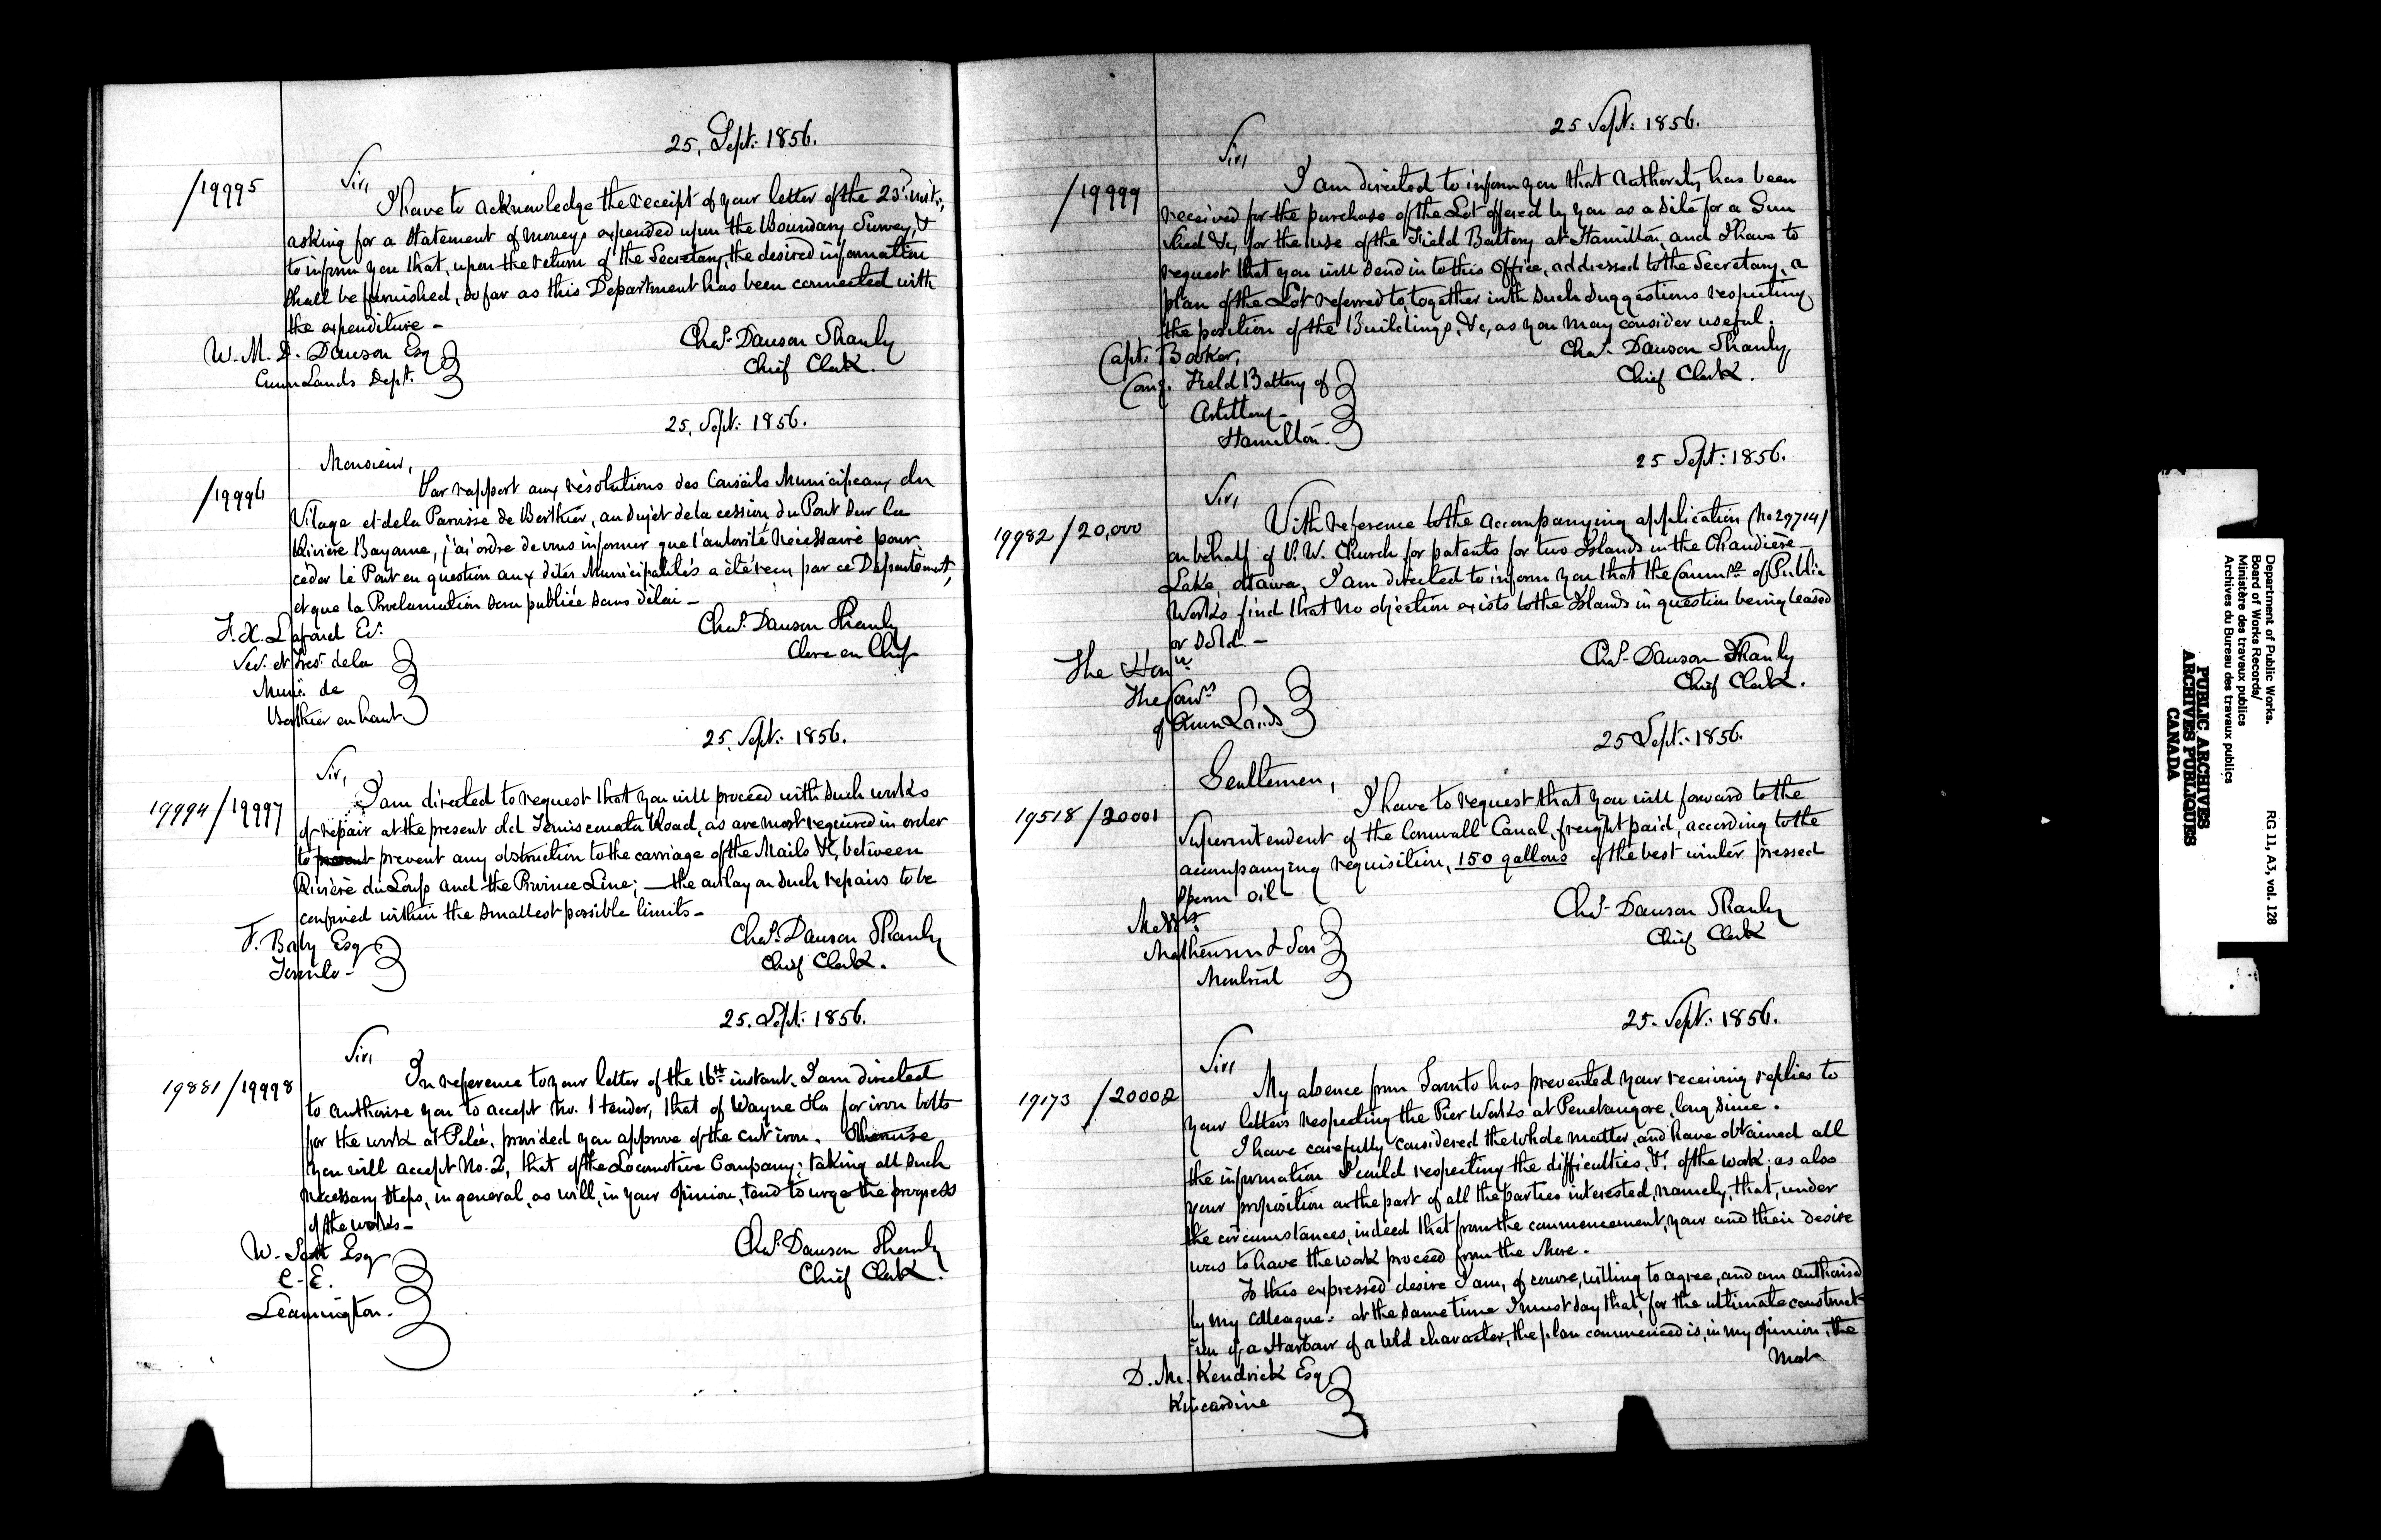 25, Sept: 1856.
/19995
Sir,
I have to acknowledge the receipt of your letter of the 23d inst:,
asking for a statement of moneys expended upon the Boundary Survey, &
to inform you that, upon the return of the Secretary, the desired information
shall be furnished, so far as this Department has been connected with
the expenditure -
W. M. D. Dawson Esq
Crown Lands Dept.
Chas. Dawson Shanly
Chief Clerk.
25, Sept: 1856.
Monsieur,
/19996
Par rapport aux résolutions des Conseils Municipeaux du
Vilage et de la Paroisse de Berthier, au sujet de la cession du Pont sur la
Rivière Bayonne, j'ai ordre de vous informer que l'autorité nécessaire pour
céder le Pont en question aux dites Municipalités a été reçu par ce Département,
et que la Proclamation sera publiée sans délai -
F. X. Lafond Ec.
Sec. et Tres. de la
Muni. de
Berthier en haut
Chas. Dawson Shanly
Clerc en Chef
25, Sept: 1856.
Sir,
19994/19997
I am directed to request that you will proceed with such works
of repair at the present old Temiscouata Road, as are most required in order
to prevent any obstruction to the carriage of the Mails &c, between
Rivière du Loup and the Province Line; — the outlay on such repairs to be
confined within the smallest possible limits -
F. Baby Esq
Toronto -
Chas. Dawson Shanly
Chief Clerk.
25. Sept: 1856.
Sir,
19881/19998
In reference to your letter of the 16th instant. I am directed
to authorise you to accept No. 1 tender, that of Wayne for iron bolts
for the work at Pelée, provided you approve of the cut iron. Otherwise
you will accept No. 2, that of the Locomotive Company; taking all such
necessary steps, in general, as will, in your opinion, tend to urge the progress
of the works -
W. Scott Esq
C. E.
Leamington.
Chas. Dawson Shanly
Chief Clerk.
25 Sept: 1856.
Sir,
/19999
I am directed to inform you that authority has been
received for the purchase of the Lot offered by you as a site for a Gun
shed &c, for the use of the Field Battery at Hamilton, and I have to
request that you will send in to this Office, addressed to the Secretary, a
plan of the Lot referred to, together with such suggestions respecting
the position of the Buildings &c, as you may consider useful.
Capt. Booker,
Comg. Field Battery of
Artillery -
Hamilton.
Chas. Dawson Shanly,
Chief Clerk.
25 Sept: 1856.
Sir,
19982/20,000
With reference to the accompanying application (No 29714)
on behalf of W. Church for patents for two Islands in the Chaudière
Lake, Ottawa, I am directed to inform you that the Commrs of Public
Works find that no objection exists to the Islands in question being leased
or sold. -
The Hon
The Comrs
of Crown Lands
Chas. Dawson Shanly
Chief Clerk.
25 Sept: 1856.
Gentlemen,
19518/20001
I have to request that you will forward to the
Superintendent of the Cornwall Canal, freight paid, according to the
accompanying requisition, 150 gallons of the best winter pressed
sperm oil
Messrs
Mathewson & Son
Montreal
Chas. Dawson Shanly
Chief Clerk
25. Sept: 1856.
Sir,
19173/20002
My absence from Toronto has prevented your receiving replies to
your letters respecting the Pier Works at Penetangore, long since.
I have carefully considered the whole matter, and have obtained all
the information I could respecting the difficulties, &c. of the work; as also
your proposition on the part of all the parties interested, namely, that, under
the circumstances, indeed that from the commencement, your and their desire
was to have the work proceed from the shore.
To this expressed desire I am, of course, willing to agree, and am authorised
by my Colleague: at the same time I must say that, for the ultimate construct-
-ion of a Harbour of a bold character, the plan commenced is, in my opinion, the
most
D. Mc. Kendrick Esq
Kincardine
Department of Public Works.
Board of Works Records/
Ministère des travaux publics
Archives du Bureau des travaux publics
RG 11, A3, vol. 128
PUBLIC ARCHIVES
ARCHIVES PUBLIQUES
CANADA